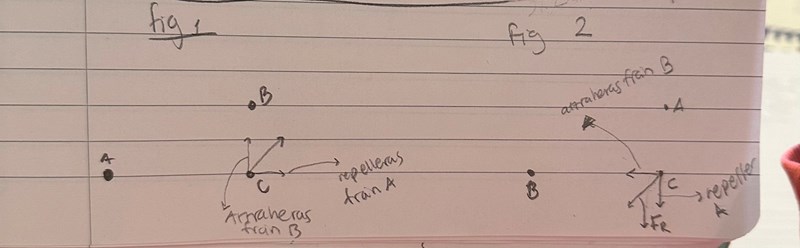 fig 1
fig 2
B
A
C
repelleras
från A
Attraheras
från B
attraheras från B
A
B
C
repeller
A
FR